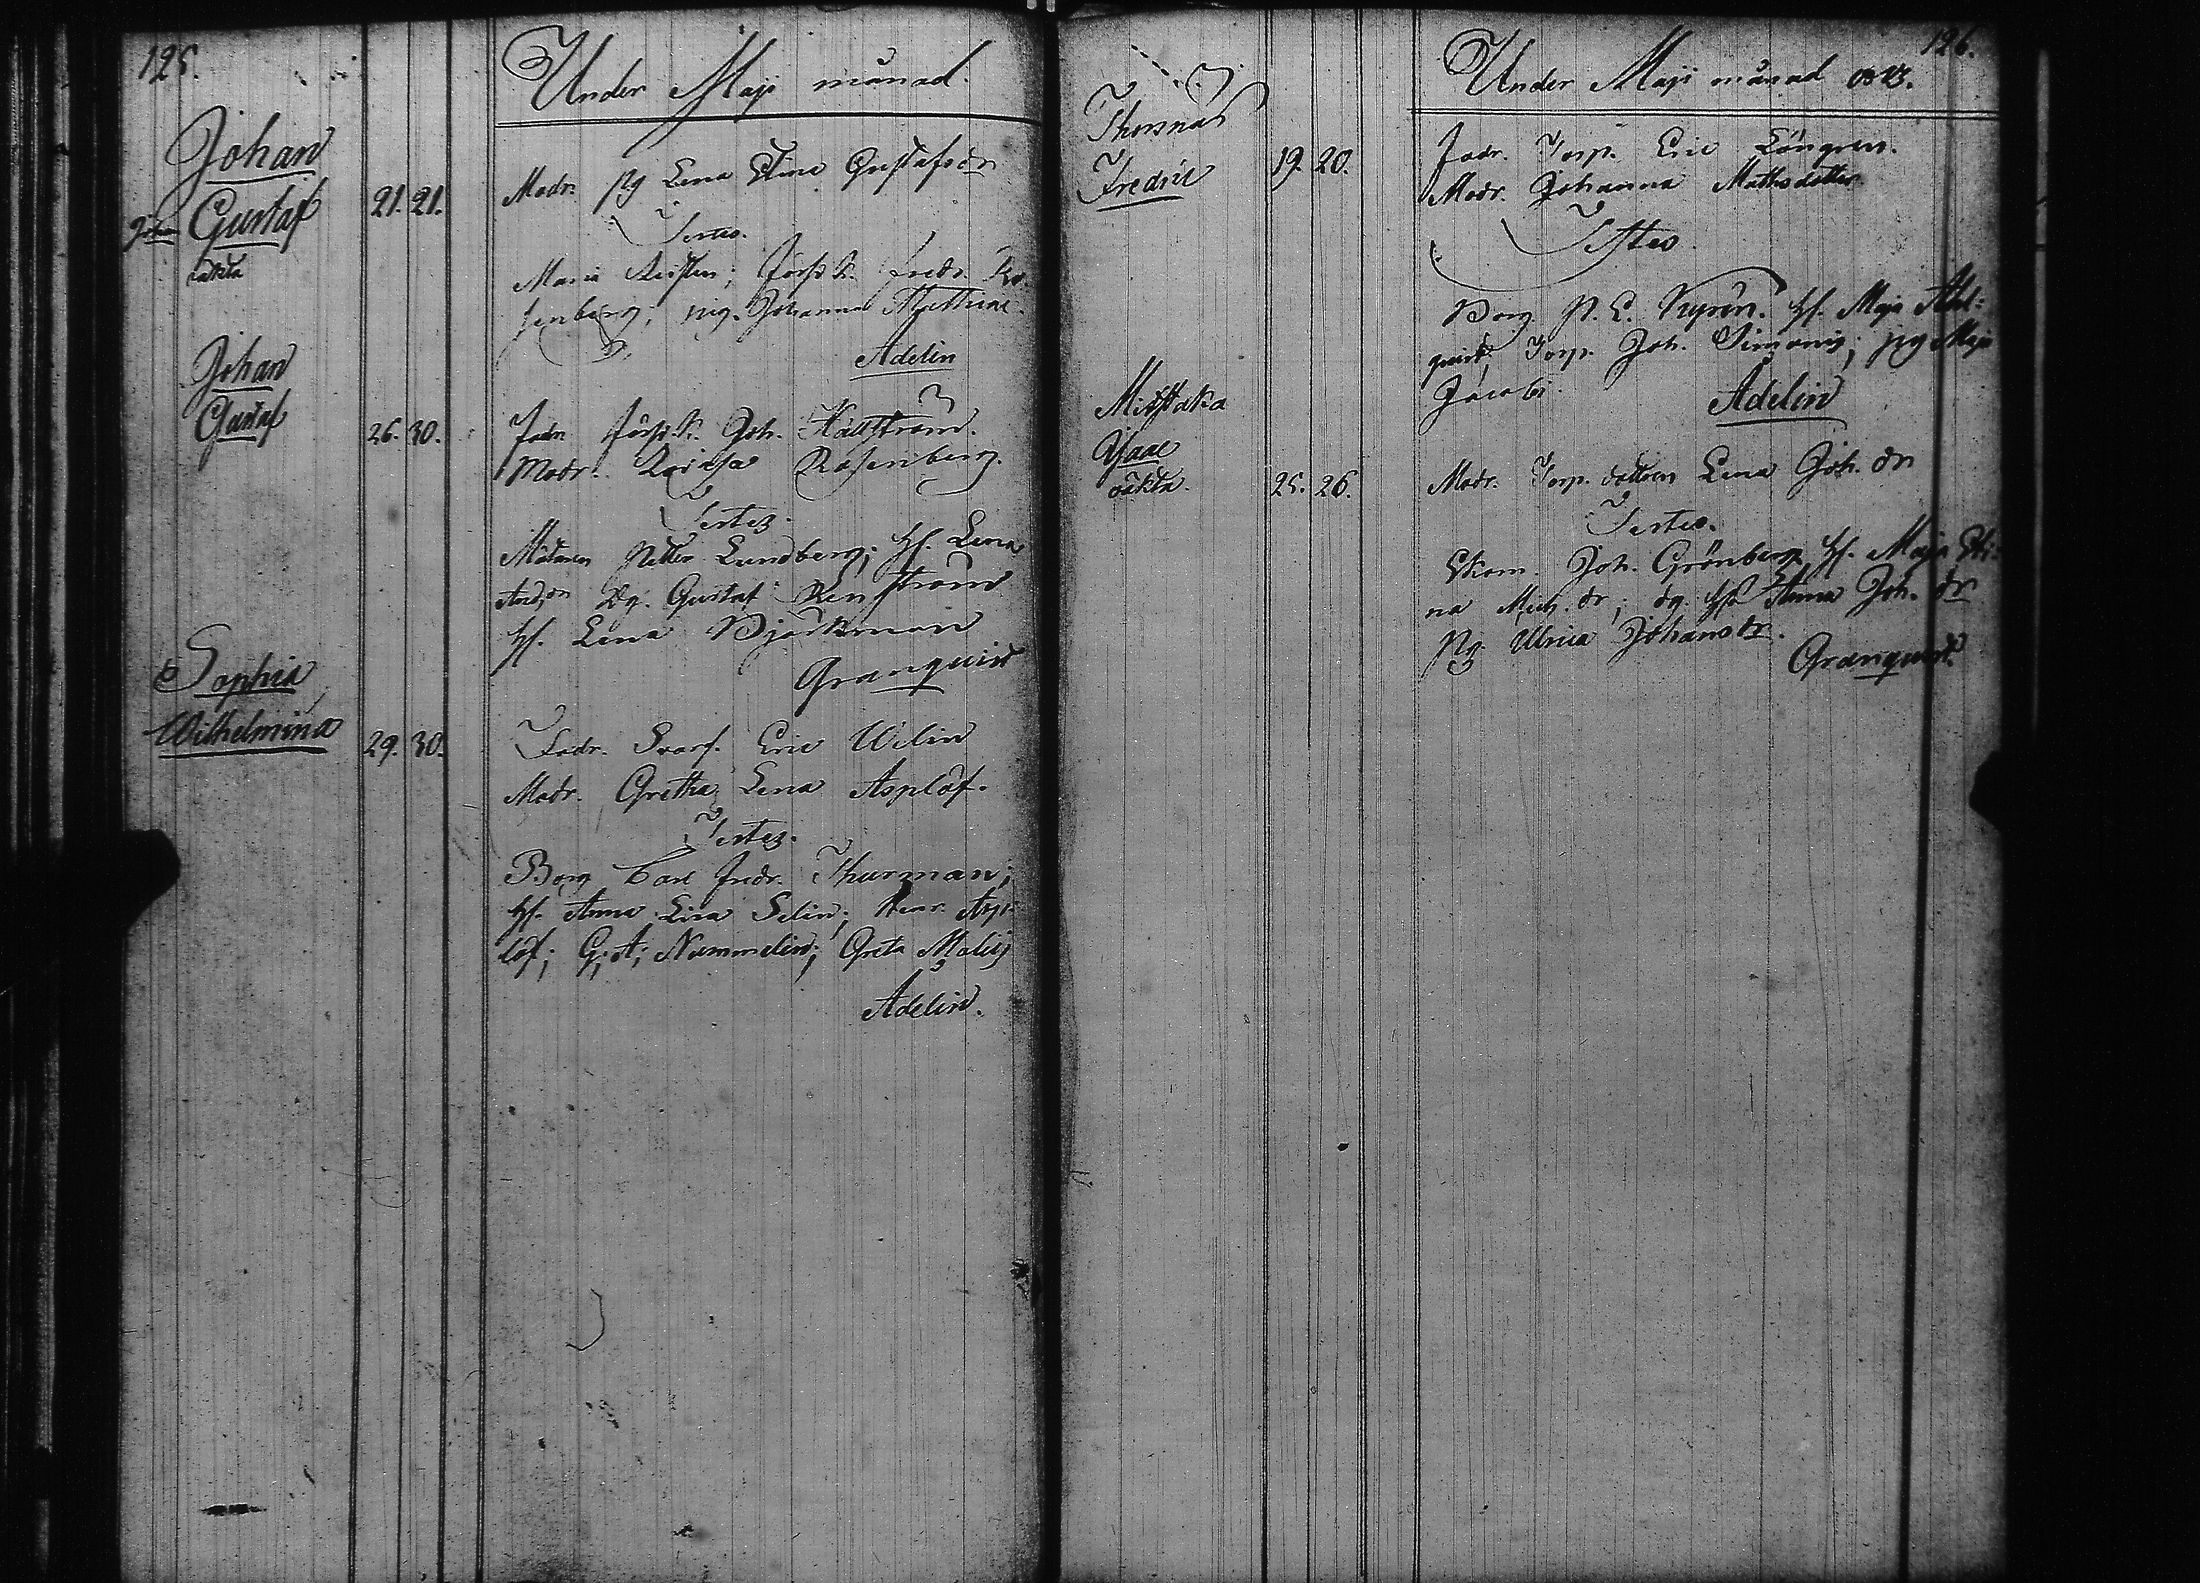 125.
Under Maji månad.
Johan
Gustaf
oäkta
21. 21.
Modr. pg Lena Stina Gustafsdr
Testes.
Maria; Försp. K. Fredr. Ro-
senberg; pig. Johanna
Adelin
Johan
Gustaf
26. 30.
Fadr Försp. K. Joh. Hällström.
Modr. Lovisa Rosenberg.
Testes.
Mötaren Petter Lundberg; Hf. Lena
And.dn Dg. Gustaf Renström
Hf. Lena Björkman
Granquist
Sophia
Wilhelmina
29. 30.
Fadr. Svarf. Eric Welin
Modr. Gretha Lena Asplöf.
Testes.
Borg Carl Fredr. Thurman;
Hf. Anna Lisa Selin; Asp-
löf; G. A. Nummelin; Greta Malis
Adelin.
126.
Under Maji månad
Thorsnäs
Fredric
19. 20.
Fadr. Torp. Eric Löngren.
Modr. Johanna Mattsdotter.
Testes
Borg P. E. Nyrén. Hf. Maja Ahl-
quist, Torp. Joh. Simonis; pg Maja
Jacobs.
Adelin
Misstaka
Isaac
oäkta.
25. 26.
Modr. Torp. dottern Lena Joh. dr
Testes.
Skom. Joh. Grönberg Hf. Maja Sti-
na Mich. dr; dg. Anna Joh. dr
Pg. Ulrica Johansdr.
Granquist.